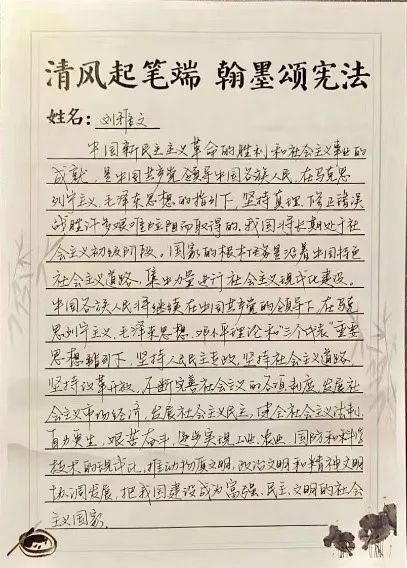 清风起笔端 翰墨颂宪法
姓名：刘雅文
中国新民主主义革命的胜利和社会主义事业的
成就，是中国共产党领导中国各族人民，在马克思
列宁主义、毛泽东思想的指引下，坚持真理，修正错误
战胜许多艰难险阻而取得的。我国将长期处于社
会主义初级阶段。国家的根本任务是沿着中国特色
社会主义道路，集中力量进行社会主义现代化建设。
中国各族人民将继续在中国共产党的领导下，在马克
思列宁主义、毛泽东思想、邓小平理论和“三个代表”重要
思想指引下，坚持人民民主专政，坚持社会主义道路，
坚持改革开放，不断完善社会主义的各项制度，发展社
会主义市场经济，发展社会主义民主，健全社会主义法制，
自力更生，艰苦奋斗，逐步实现工业、农业、国防和科学
技术的现代化，推动物质文明、政治文明和精神文明
协调发展，把我国建设成为富强、民主、文明的社会
主义国家。